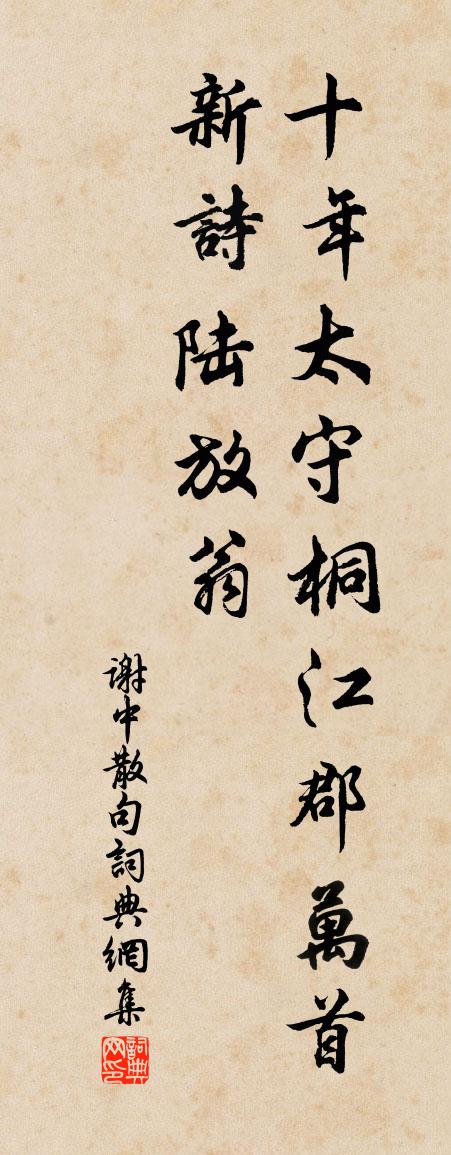 十年太守桐江郡萬首
新詩陆放翁
謝中散句詞典網集
詞典网印